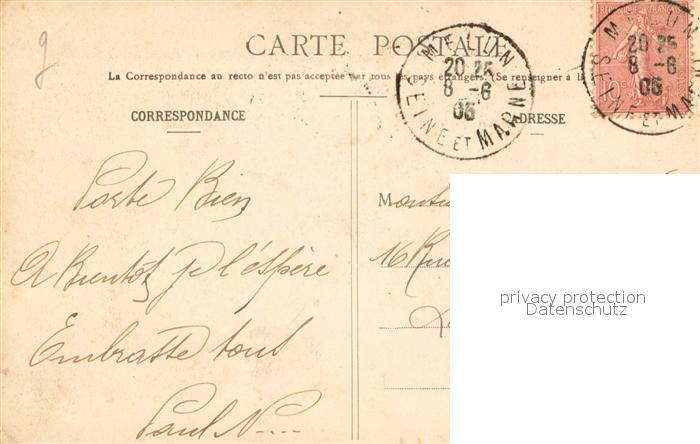 g
CARTE POSTALE
La Correspondance au recto n'est pas acceptée par tous les pays étrangers. (Se renseigner à la
CORRESPONDANCE
ADRESSE
MELUN
20 25
8 -6
05
SEINE ET MARNE
MELUN
20 25
8 -6
05
SEINE ET MARNE
Porte Bien
A Bientôt je l'éspère
Embrasse tous
Paul N....
16 Rue
privacy protection
Datenschutz